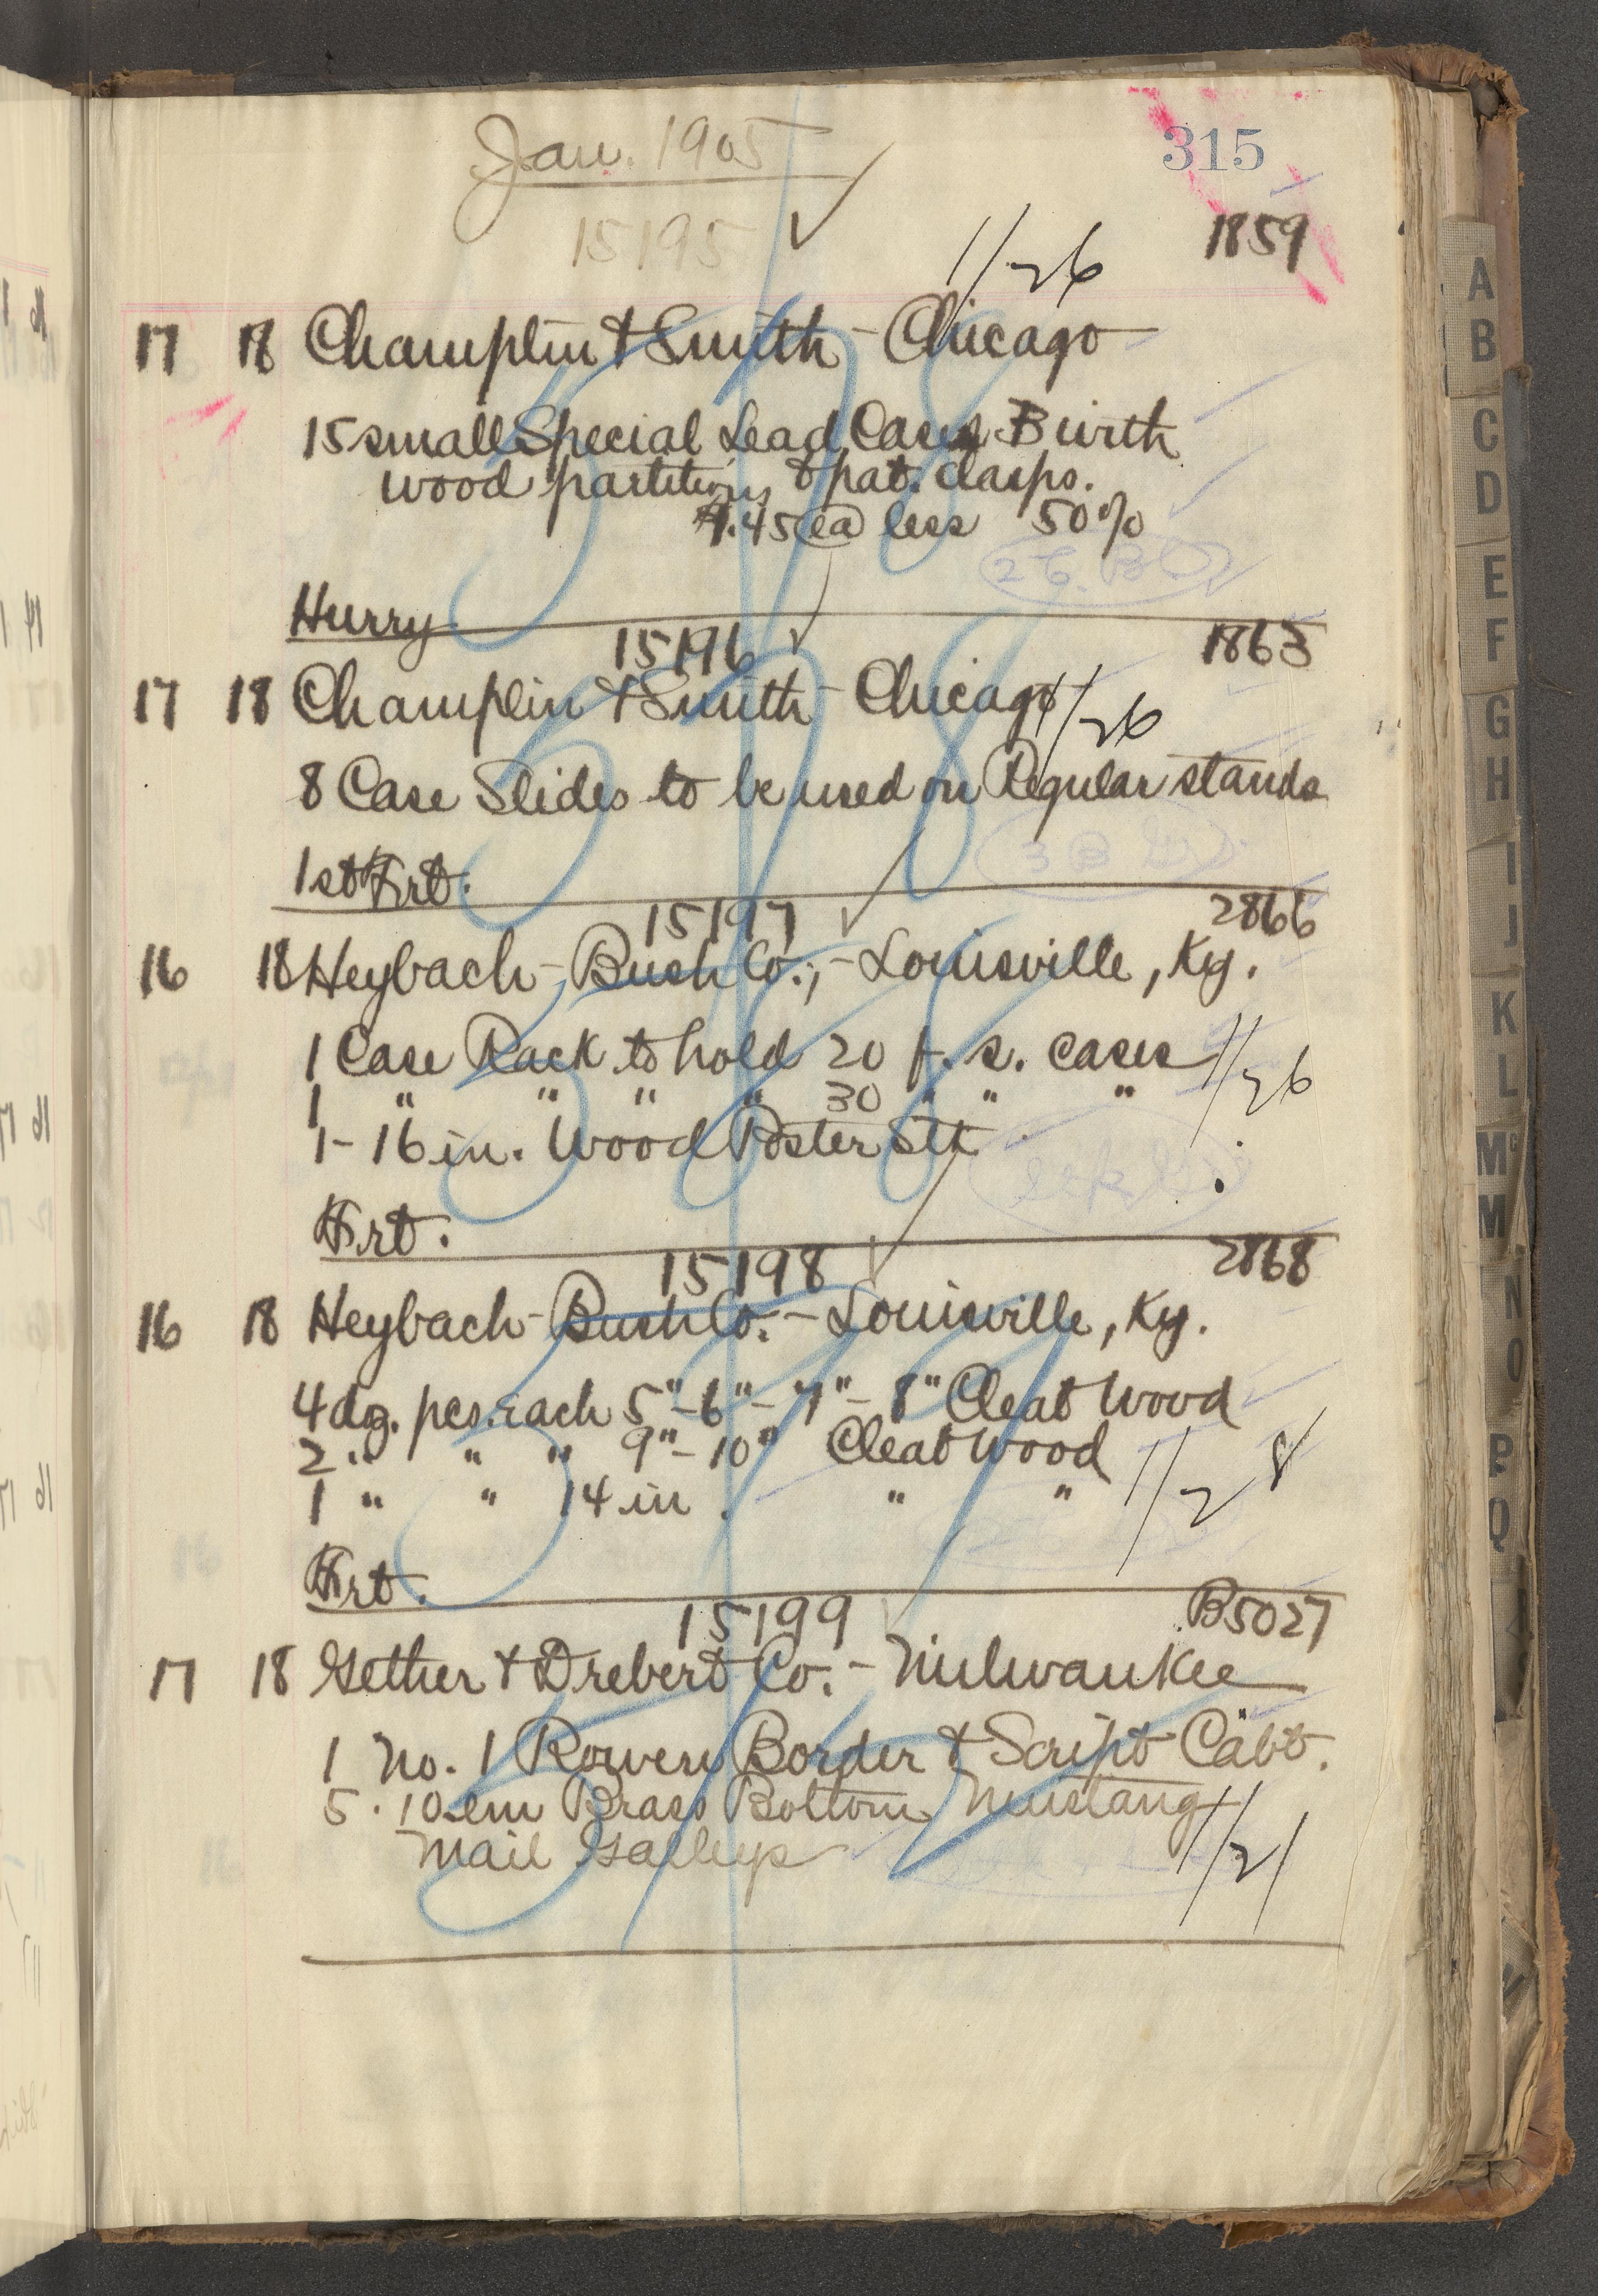 Jan. 1905
315
15195
1859
1/26
17 18 Champlin & Smith - Chicago
15 small Special Lead Cases B with
wood partitions & pat. clasps.
$1.45 ea less 50%
Hurry
15196
1863
17 18 Champlin & Smith - Chicago
1/26
8 Case Slides to be used on Regular stands
1st Frt.
15197
2866
16 18 Heybach-Bush Co., - Louisville, Ky.
1 Case Rack to hold 20 f. s. cases
1 " " " " 30 " " "
1/26
1- 16 in. Wood Poster Stk
Frt.
15198
2868
16 18 Heybach-Bush Co. - Louisville, Ky.
4 dz. pcs. each 5"-6"-7"-8" Cleat Wood
2 " " " 9"-10" Cleat Wood
1 " " 14 in. " "
1/28
Frt.
15199
B5027
17 18 Gether & Drebert Co. - Milwaukee
1 No. 1 Rowen Border & Script Cabt.
5 . 10 em Brass Bottom Mustang
Mail Galleys
1/21
A
B
C
D
E
F
G
H
I
J
K
L
Mc
M
N
O
P
Q